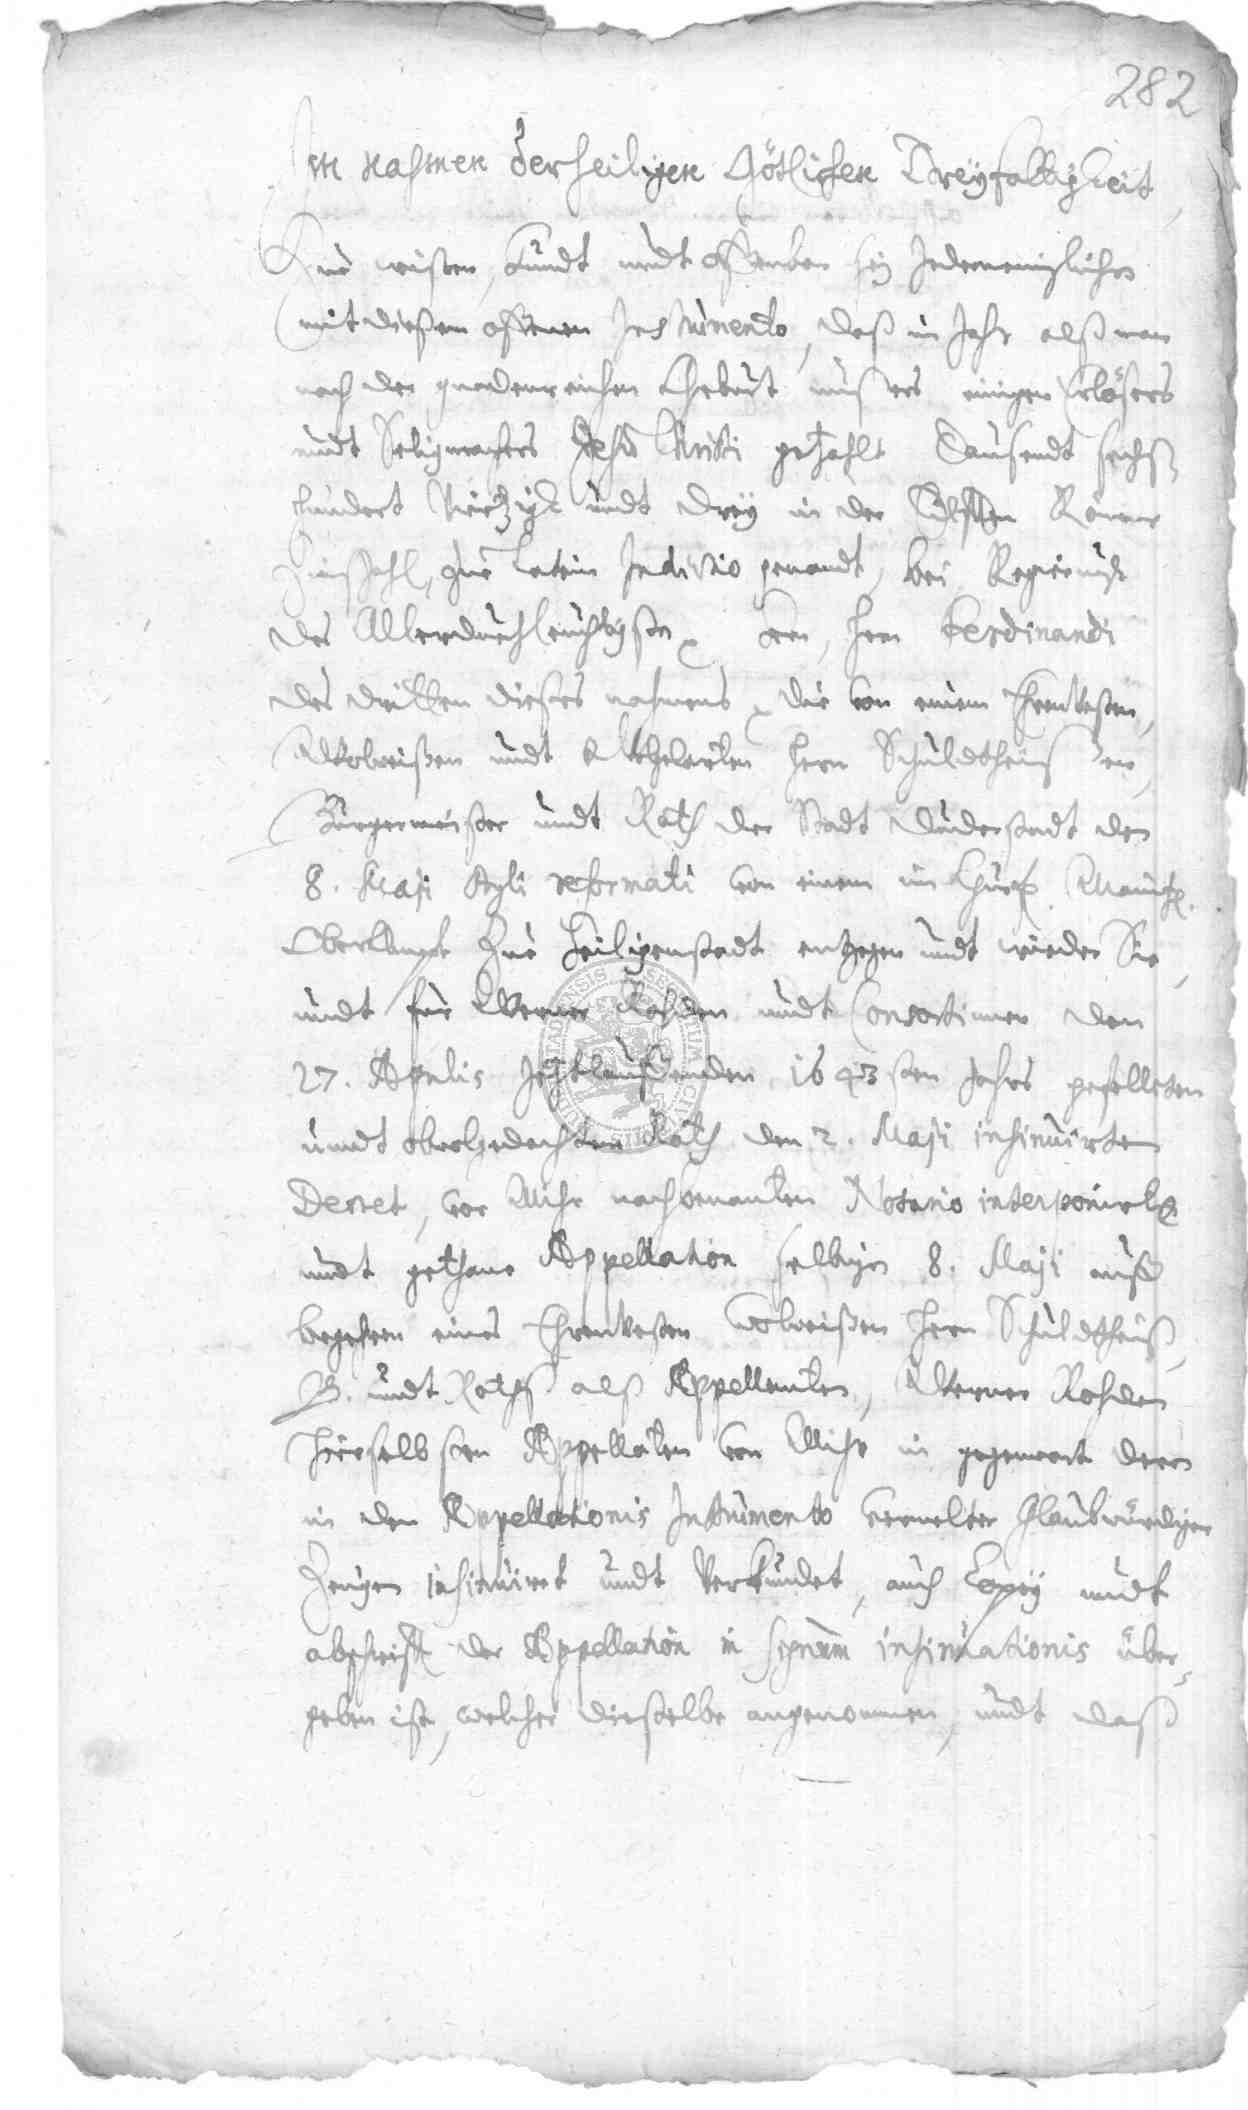 282
Im nahmen der heiligen Götlichen Dreyfaltigkeit
Zue wißen, kundt undt offenbar sey Jedermenniglichen
mit dießem offenen Instrumento, daß im Jahr alß man
nach der gnadenreichen Gebuhrt unsers einigen Erlößers
undt Seligmachers Jesu Christi gezahlt Tausendt sechß
hundert Viertzigk undt drey in der Eilfften Römer
Zinßzahl, zue Latein Indictio genandt, bei Regierungk
des Allerdurchleuchtigsten hern Ferdinandi
des dritten dießes nahmens die von einem Ehrnvesten,
Wolweißen undt Wolgelarten Hern Schuldtheißen,
Bürgermeister undt Rath der Stadt Duderstadt den
8. Maji styli reformati von einem im Churf. Maintz.
Oberampt zue Heiligenstadt entgegen undt wieder Sie,
undt für Werner Rohden undt Consortinnen den
27. Aprilis Jetztlauffenden 1643sten Jahrs gefelleten
undt obwolgedachten Rath den 2. Maji insinuirten
Decret, vor Mihr nachbenanten Notario interponirte
undt gethane Appellation selbigen 8. Maji auff
begehren eines Ehrnvesten Wolweißen Hern Schuldtheiß,
B. undt Raths alß Appellanten, Werner Rohden
hierselbsten Appellaten von Mihr in gegenwart derer
in dem Appellationis Instrumento vermelter Glaubwürdiger
Zeugen insinuiret undt verkundet, auch Copey undt
abschrifft der Appellation in signum insinuationis über-
geben ist, welcher dieselbe angenommen, undt daß